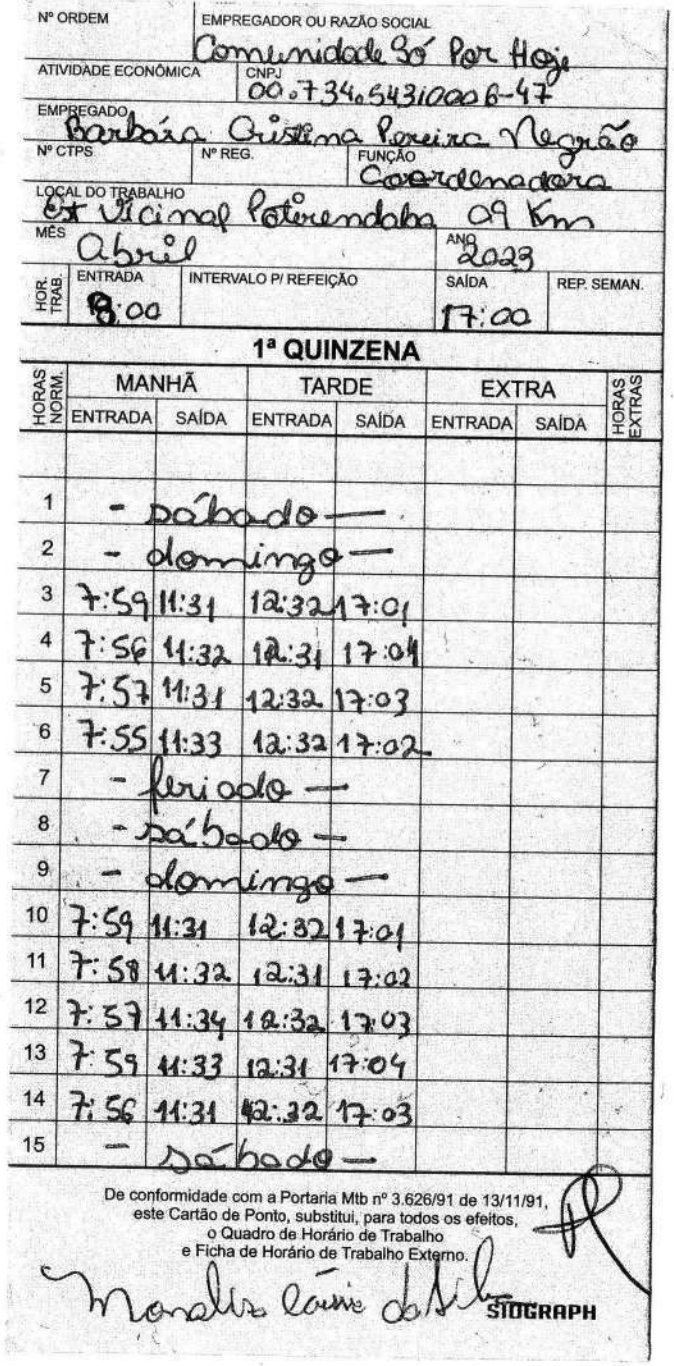 Nº ORDEM EMPREGADOR OU RAZÃO SOCIAL
Comunidade Só Por Hoje
ATIVIDADE ECONÔMICA CNPJ
00.734.5431000 6-47
EMPREGADO
Barbára Cristina Pereira Negrão
Nº CTPS Nº REG. FUNÇÃO
Coordenadora
LOCAL DO TRABALHO
Est Vicinal Potirendaba 09 Km
MÊS Abril ANO 2023
HOR. TRAB. ENTRADA INTERVALO P/ REFEIÇÃO SAÍDA REP. SEMAN.
8:00 17:00
1ª QUINZENA
HORAS NORM. MANHÃ TARDE EXTRA HORAS EXTRAS
ENTRADA SAÍDA ENTRADA SAÍDA ENTRADA SAÍDA
1 - sábado —
2 - domingo —
3 7:59 11:31 12:32 17:01
4 7:56 11:32 12:31 17:04
5 7:57 11:31 12:32 17:03
6 7:55 11:33 12:32 17:02
7 - feriado —
8 - sábado —
9 - domingo —
10 7:59 11:31 12:32 17:01
11 7:58 11:32 12:31 17:02
12 7:57 11:34 12:32 17:03
13 7:59 11:33 12:31 17:04
14 7:56 11:31 12:32 17:03
15 - sábado —
De conformidade com a Portaria Mtb nº 3.626/91 de 13/11/91,
este Cartão de Ponto, substitui, para todos os efeitos,
o Quadro de Horário de Trabalho
e Ficha de Horário de Trabalho Externo.
da Sil
SIOGRAPH